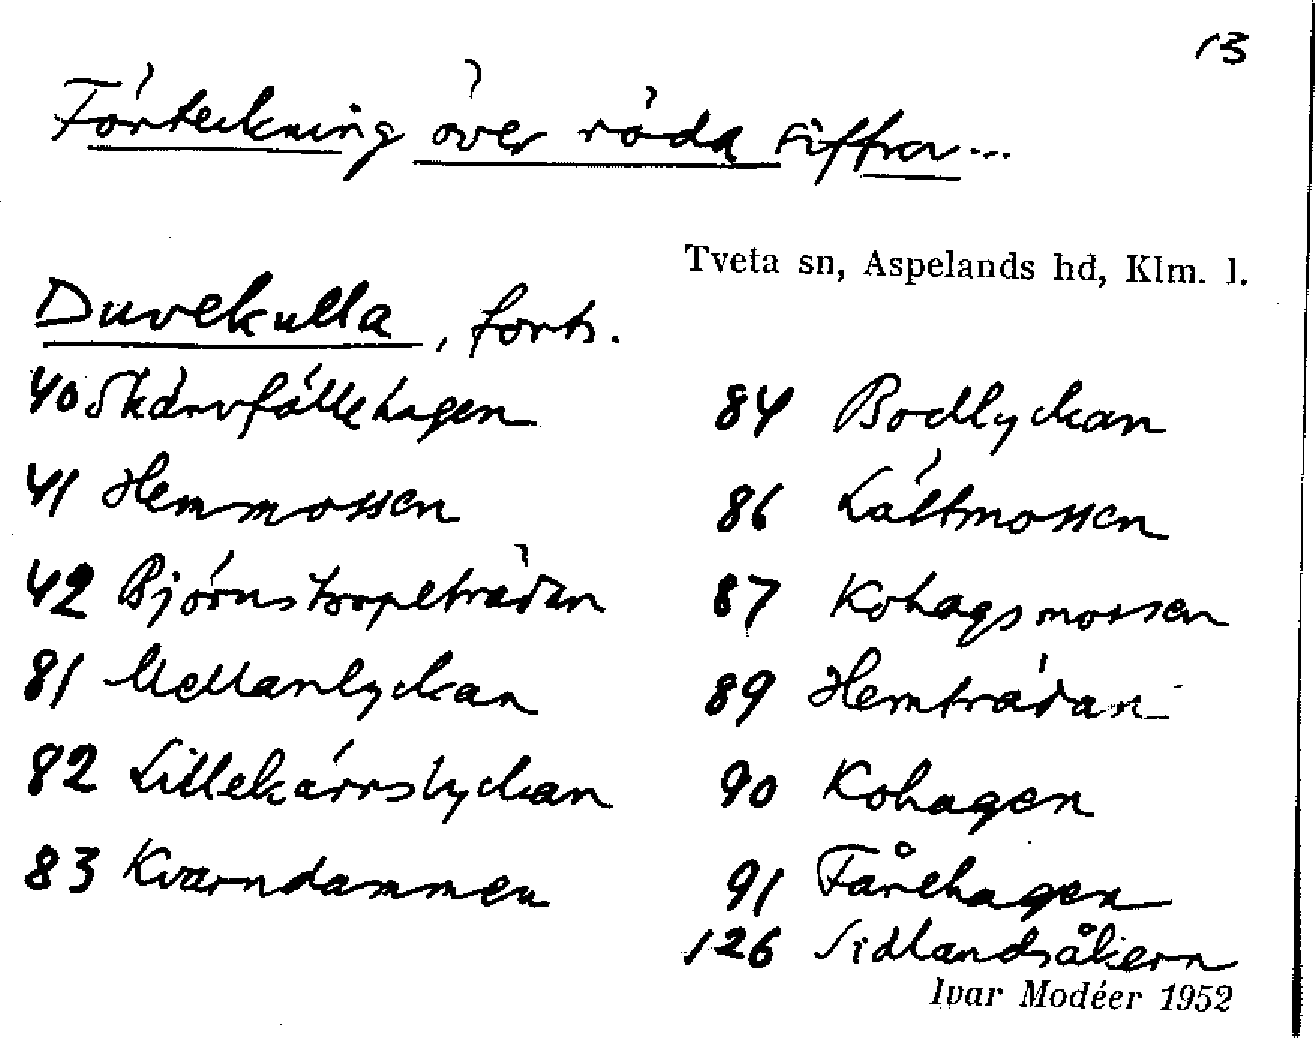 13
Förteckning över röda siffror...
Tveta sn, Aspelands hd, Klm. l.
Duvekulla, forts.
40 Skärvfällehagen
41 Hemmossen
42 Björnstorpeträdan
81 Mellanlyckan
82 Lillekärrslyckan
83 Kvarndammen
84 Bodlyckan
86 Lältmossen
87 Kohagsmossen
89 Hemträdan
90 Kohagen
91 Fårehagen
126 Sidlandsåkern
Ivar Modéer 1952